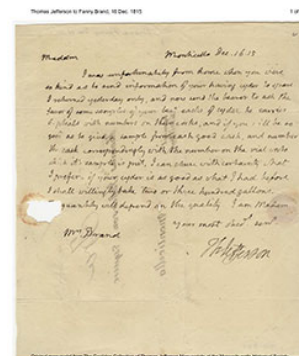 Thomas Jefferson to Fanny Brand, 16 Dec. 1813
1 of
Maddam Monticello Dec. 16. 13
I was unfortunately from home when you were
so kind as to send information of your having cyder to spare
I returned yesterday only, and now send the bearer to ask the
favor of some samples of your best casks of cyder. he carries
phials with numbers on their corks, and if you will be so
good as to give a sample from each good cask, and number
the cask correspondingly with the number on the vial into
which it's sample is put, I can chuse with certainty what
I prefer. if your cyder is as good as what I had before
I shall willingly take two or three hundred gallons.
quantity will depend on the quality. I am Madam
your most obedt. servt.
Mrs. Brand
Th Jefferson